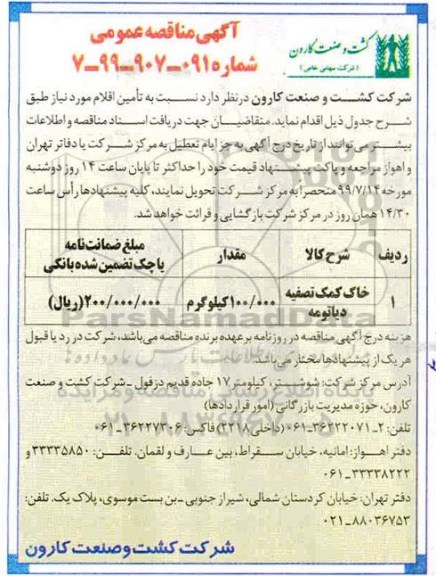 کشت و صنعت کارون
(شرکت سهامی خاص)
آگهی مناقصه عمومی
شماره ۰۹۱-۹۰۷-۹۹-۷
شرکت کشت و صنعت کارون درنظر دارد نسبت به تأمین اقلام مورد نیاز طبق
شرح جدول ذیل اقدام نماید. متقاضیان جهت دریافت اسناد مناقصه و اطلاعات
بیشتر می‌توانند از تاریخ درج آگهی به جز ایام تعطیل به مرکز شرکت یا دفاتر تهران
و اهواز مراجعه و پاکت پیشنهاد قیمت خود را حداکثر تا پایان ساعت ۱۴ روز دوشنبه
مورخه ۹۹/۷/۱۴ منحصراً به مرکز شرکت تحویل نمایند، کلیه پیشنهادها رأس ساعت
۱۴/۳۰ همان روز در مرکز شرکت بازگشایی و قرائت خواهد شد.
ردیف شرح کالا مقدار مبلغ ضمانت‌نامه
یا چک تضمین شده بانکی
۱ خاک کمک تصفیه
دیاتومه ۱۰۰/۰۰۰ کیلوگرم ۲۰۰/۰۰۰/۰۰۰ (ریال)
ParsNamadData
هزینه درج آگهی مناقصه در روزنامه بر عهده برنده مناقصه می‌باشد، شرکت در رد یا قبول
هر یک از پیشنهادها مختار می‌باشد.
آدرس مرکز شرکت: شوشتر، کیلومتر ۱۷ جاده قدیم دزفول - شرکت کشت و صنعت
کارون، حوزه مدیریت بازرگانی (امور قراردادها)
تلفن: ۲-۳۶۲۲۲۰۷۱-۰۶۱ (داخلی ۳۲۱۸) فاکس: ۳۶۲۲۷۳۰۶-۰۶۱
دفتر اهواز: امانیه، خیابان سقراط، بین عارف و لقمان. تلفن: ۳۳۳۳۵۸۵۰ و
۳۳۳۳۸۲۲۲-۰۶۱
دفتر تهران: خیابان کردستان شمالی، شیراز جنوبی - بن بست موسوی، پلاک یک. تلفن:
۸۸۰۳۶۷۵۳-۰۲۱
شرکت کشت و صنعت کارون